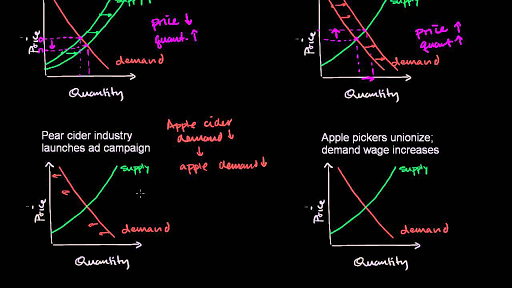 supply
price ↓
quant. ↑
Price
demand
Quantity
supply
price ↑
quant ↑
Price
demand
Quantity
Pear cider industry
launches ad campaign
Apple cider
demand ↓
↓
apple demand ↓
supply
Price
demand
Quantity
Apple pickers unionize;
demand wage increases
supply
Price
demand
Quantity